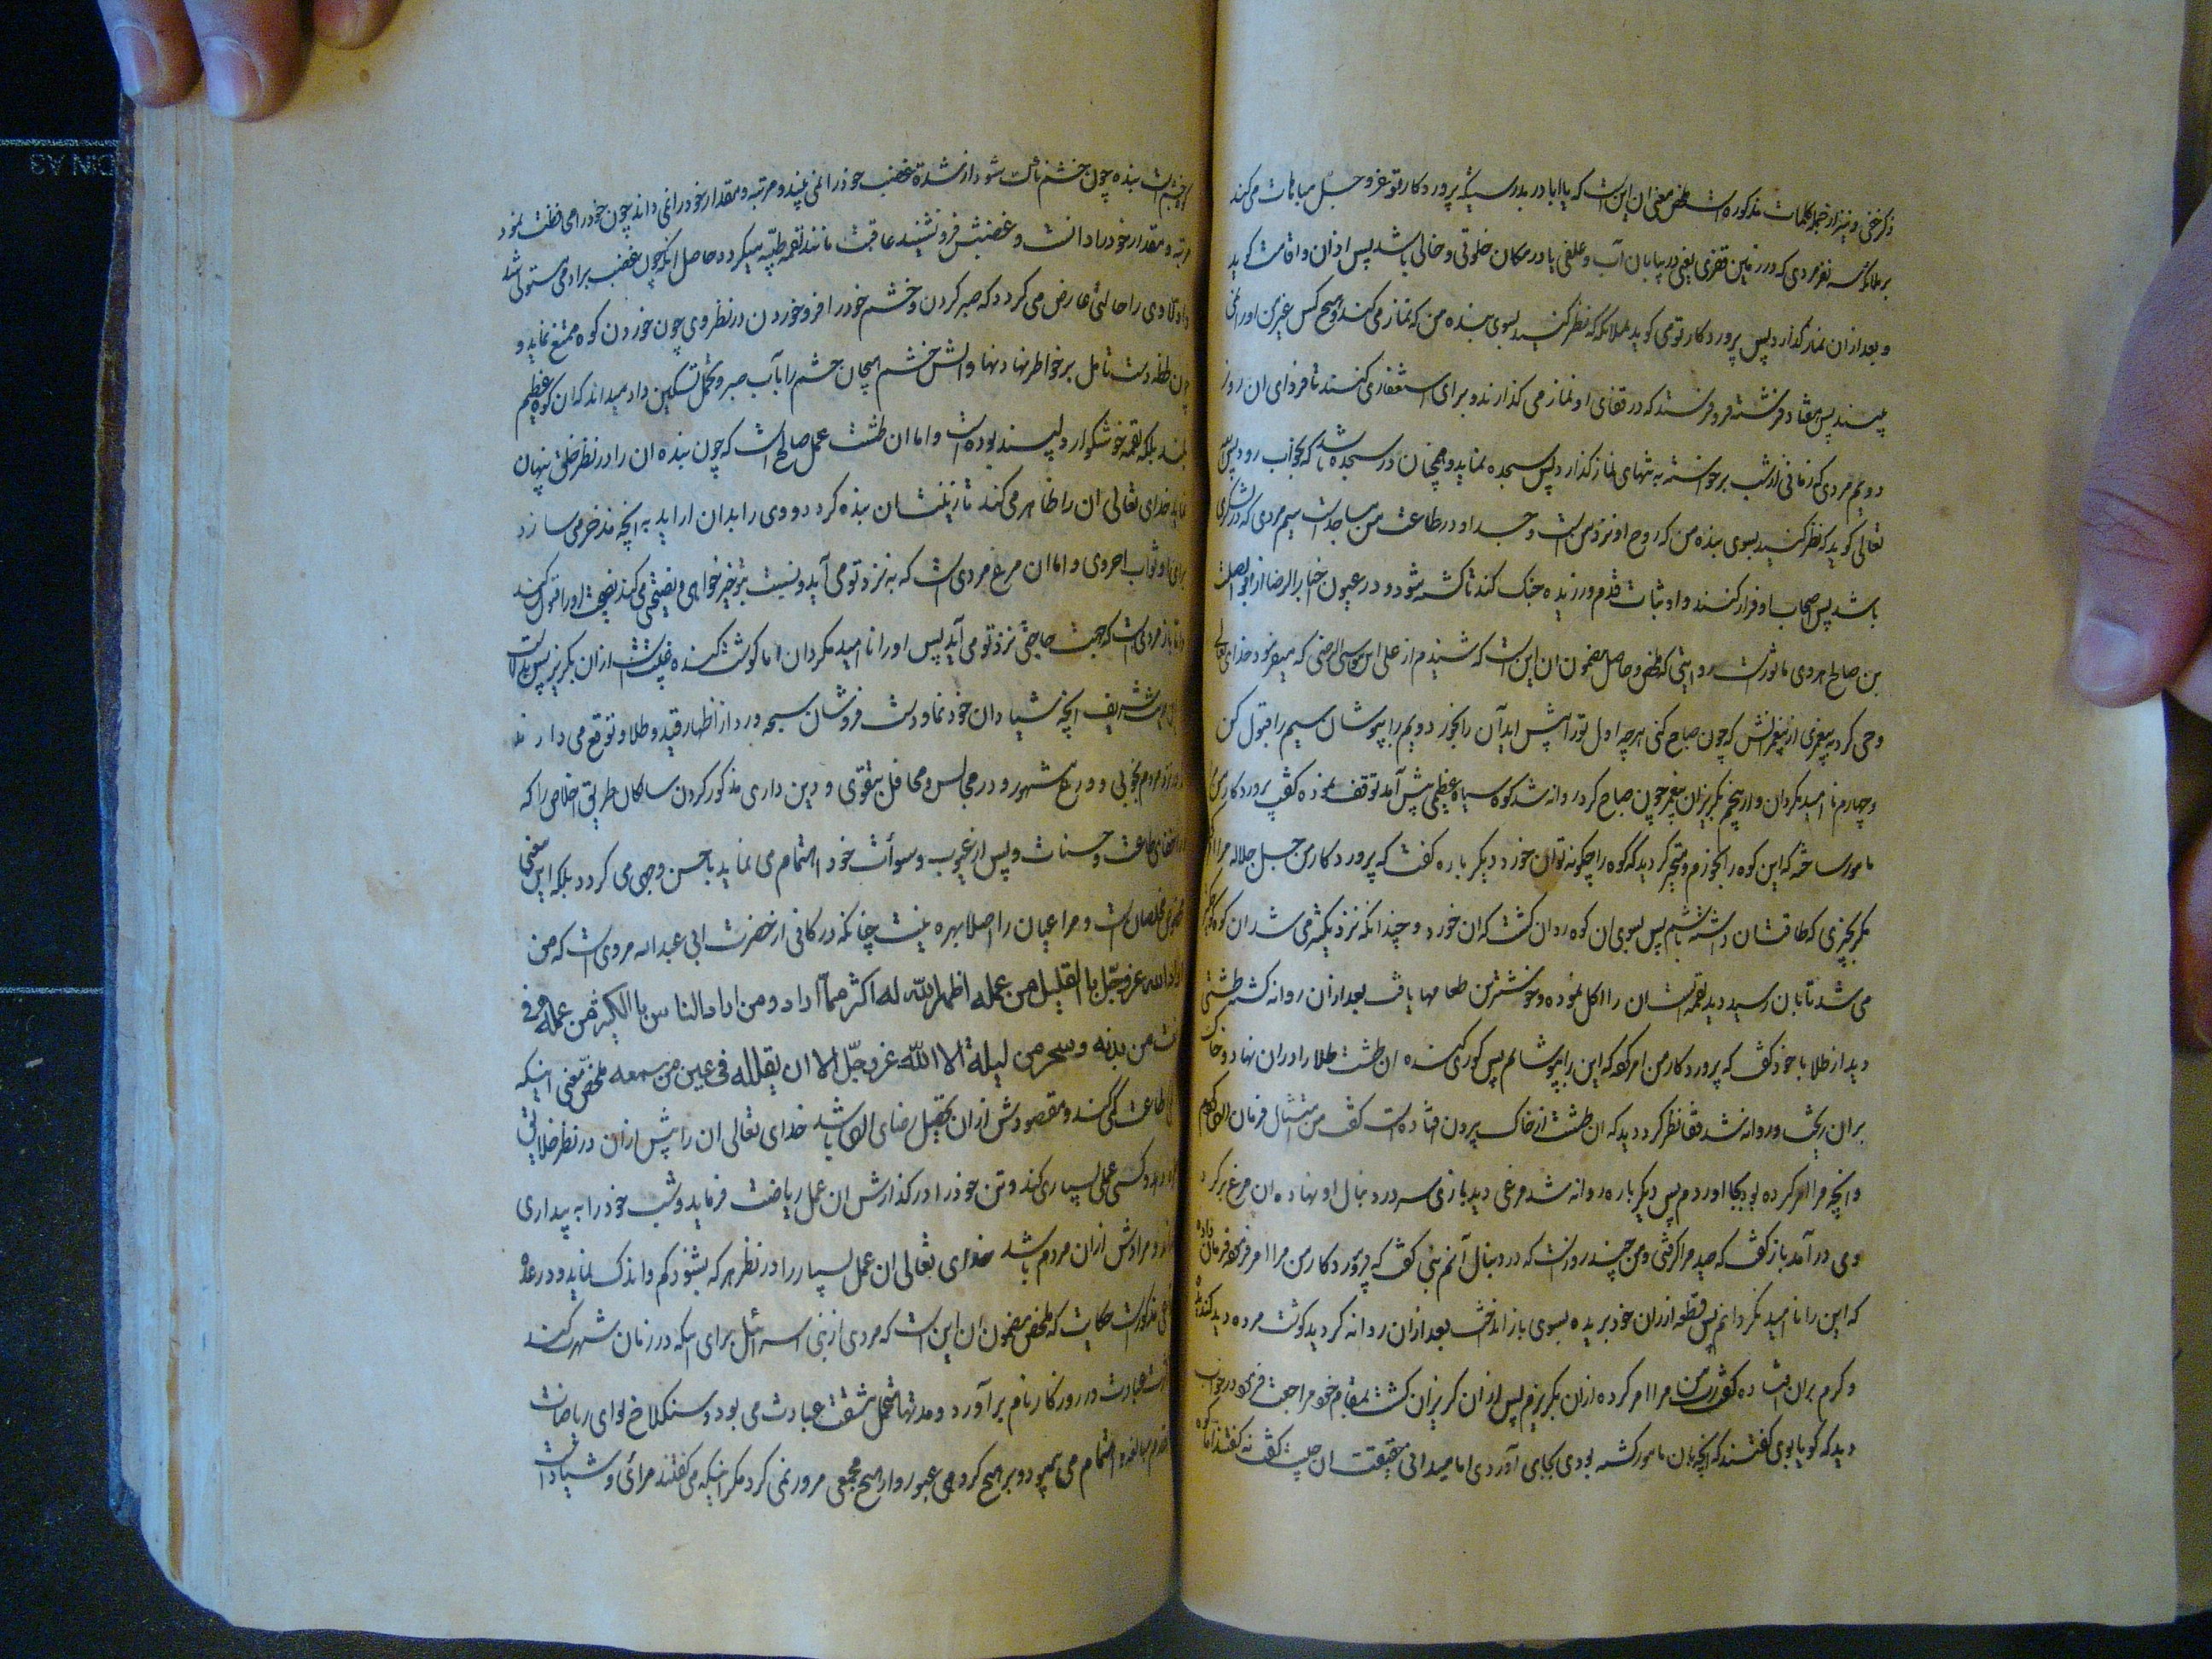 ذکر خفی و نیز از جمله کلمات مذکوره است ملخص معنی ان این است که یا اباذر بدرستیکه پروردکار تو عز و جل مباهات می کند
بر ملائکه بسه نفر مردی که در زمین قفری یعنی در بیابان بی آب و علفی یا در مکان خلوتی و خالی باشد پس اذان و اقامت کوید
و بعد از ان نماز کذارد پس پروردکار تو می کوید بملائکه که نظر کنید بسوی بنده من که نماز می کند و هیچ کس غیر من او را نمی
بیند پس هفتاد فرشته فرو فرستد که در قفای او نماز می کذارند و برای او استغفار می کنند تا فردای ان روز
دویم مردی که زمانی از شب برخواسته به تنهای نماز کذارد پس سجده نماید و همچنان در سجده باشد که بخواب رود پس الله
تعالی کوید که نظر کنید بسوی بنده من که روح او نزد من است و جسد او در طاعت من ساجد است سیم مردی که در لشکری
باشد پس اصحاب او فرار کنند و او ثبات قدم ورزیده جنک کند تا کشته شود و در عیون اخبار الرضا از ابو الصلت
بن صالح هروی ماثور است روایتی که ملخص و حاصل مضمون ان این است که شنیدم از علی ابن موسی الرضی که میفرمود خدای تعالی
وحی کرد به پیغمبری از پیغمبرانش که چون صباح کنی هر چه اول تو را پیش اید آن را بخور دویم را بپوشان سیم را قبول کن
و چهارم نا امید مکردان و از پنجم بکریز ان پیغمبر چون صباح کرد روانه شد کوه سیاه عظیمی پیش آمد توقف نموده کفت پروردکار من
مامور ساخته که این کوه را بخورم و متحیر کردید که کوه را چکونه توان خورد دیکر باره کفت که پروردکار من جل جلاله مرا امر
مکر بچیزی که طاقت ان داشته باشم پس بسوی ان کوه روان کشت که ان خورد و چندانکه نزدیکتر می شد ان کوه
می شد تا بان رسید دید لقمه ایست ان را اکل نموده و خوشترین طعامها یافت بعد از ان روانه کشته طشتی
دید از طلا با خود کفت که پروردکار من امر کرده که این را بپوشانم پس کوری کنده ان طشت طلا را در ان نهاد و خاک
بر ان ریخت و روانه شد قفا نظر کرد دید که ان طشت از خاک بیرون افتاده است کفت من امتثال فرمان الهی کردم
و انچه مرا امر کرده بود بجا اوردم پس دیکر باره روانه شد مرغی دید بازی سر در دنبال او نهاده ان مرغ بر کرد
وی در آمد باز کفت که صید مرا کرفتی و من چند روز است که در دنبال آنم نبی کفت که پروردکار من مرا امر فرموده
که این را نا امید نکردانم پس قطعه از ران خود بریده بسوی باز انداخت بعد از ان روانه کردید کوشت مرده دید کندیده
و کرم بر ان افتاده کفت رب من مرا امر کرده از ان بکریزم پس از ان کریزان کشت بمقام خود مراجعت فرمود در خواب
دید که کویا بوی کفتند که انچه بان مامور کشته بودی بجای آوردی اما میدانی حقیقت ان چیست کفت نه کفتند اما کوه
خشم است بنده چون خشم ناک شود از شدة غضب خود را نمی بیند و مرتبه و مقدار خود را نمی داند چون خود را محافظت نمود
مرتبه و مقدار خود را دانست و غضبش فرو نشیند عاقبت مانند لقمه طیبه میکردد حاصل انکه چون غضب بر ادمی مستولی شد
وی را حالتی عارض می کردد که صبر کردن و خشم خود را فرو خوردن در نظر وی چون خوردن کوه ممتنع نماید و
چون دست تامل بر خاطر نهاد نهاد و اتش خشم را بآب صبر و تحمل تسکین داد میداند که ان کوه عظیم
بلکه لقمه خوشکوار دلپسند بوده است و اما ان طشت عمل صالح است که چون بنده ان را در نظر خلق پنهان
نماید خدای تعالی ان را ظاهر می کند تا زینت ان بنده کردد و وی را بدان اراید به انچه مذخر می سازد
برای او ثواب اخروی و اما ان مرغ مردی است که به نزد تو می آید و نسبت بتو خیر خواهی و نصیحتی می کند نصیحت او را قبول کن
و اما باز مردی است که جهت حاجتی نزد تو می آید پس او را نا امید مکردان اما کوشت کندیده غیبت است از ان بکریز پس بدلالت
شریف انچه شیادان خود نما و دست فروشان سبحه ورد از اظهار قید و طلا و توقع می دارند
مردم بخوبی و ورع مشهور و در مجالس و محافل بتقوی و دین داری مذکور کردن سالکان طریق اخلاص را که
اخفای طاعت و حسنات و پس از عیوب و سوآت خود اهتمام می نماید باحسن وجهی می کردد بلکه این معنی
مخلصان است و مراعیان را اصلا بهره نیست چنانکه در کافی از حضرت ابی عبد الله مروی است که من
اراد الله عز و جل با القلیل من عمله اظهر الله له اکثر مما اراد و من اراد الناس با الکثیر من عمله فی
تعب من بدنه و سهر من لیله الا الله عز و جل الا ان یقلله فی عین من سمعه ملخص معنی اینکه
طاعت کمی کند و مقصودش از ان تحصیل رضای الهی باشد خدای تعالی ان را پیش از ان در نظر خلایق
و کسی عملی بسیاری کند و تن خود را در کذارش ان عمل ریاضت فرماید و شب خود را به بیداری
و مرادش از ان مردم باشد خدای تعالی ان عمل بسیار را در نظر هر که بشنود کم و اندک نماید و در عده
مذکور است حکایت که ملخص مضمون ان این است که مردی از بنی اسرائیل برای اینکه در زمان شهرت کند
عبادت در روزکار نام بر آورد و مدتها متحمل مشقت عبادت می بود و سنکلاخ وادی ریاضات
اهتمام می پیمود و بر هیچ کروهی عبور و از هیچ مجمعی مرور نمی کرد مکر اینکه می کفتند مرائی و شیاد است